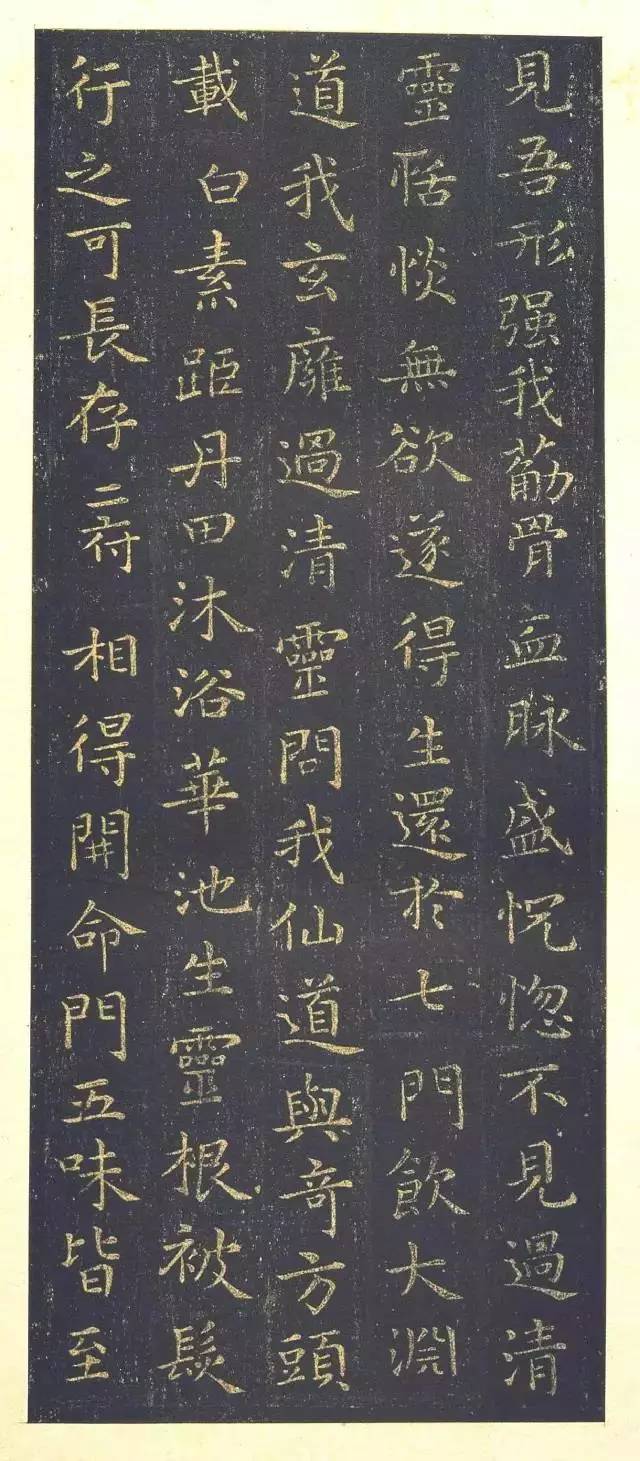 見吾形强我葋骨血脉盛怳惚不見過清
靈恬惔無欲遂得生還於七門飲大淵
道我玄廱過清靈問我仙道與奇方頭
載白素距丹田沐浴華池生靈根被髮
行之可長存二府相得開命門五味皆至